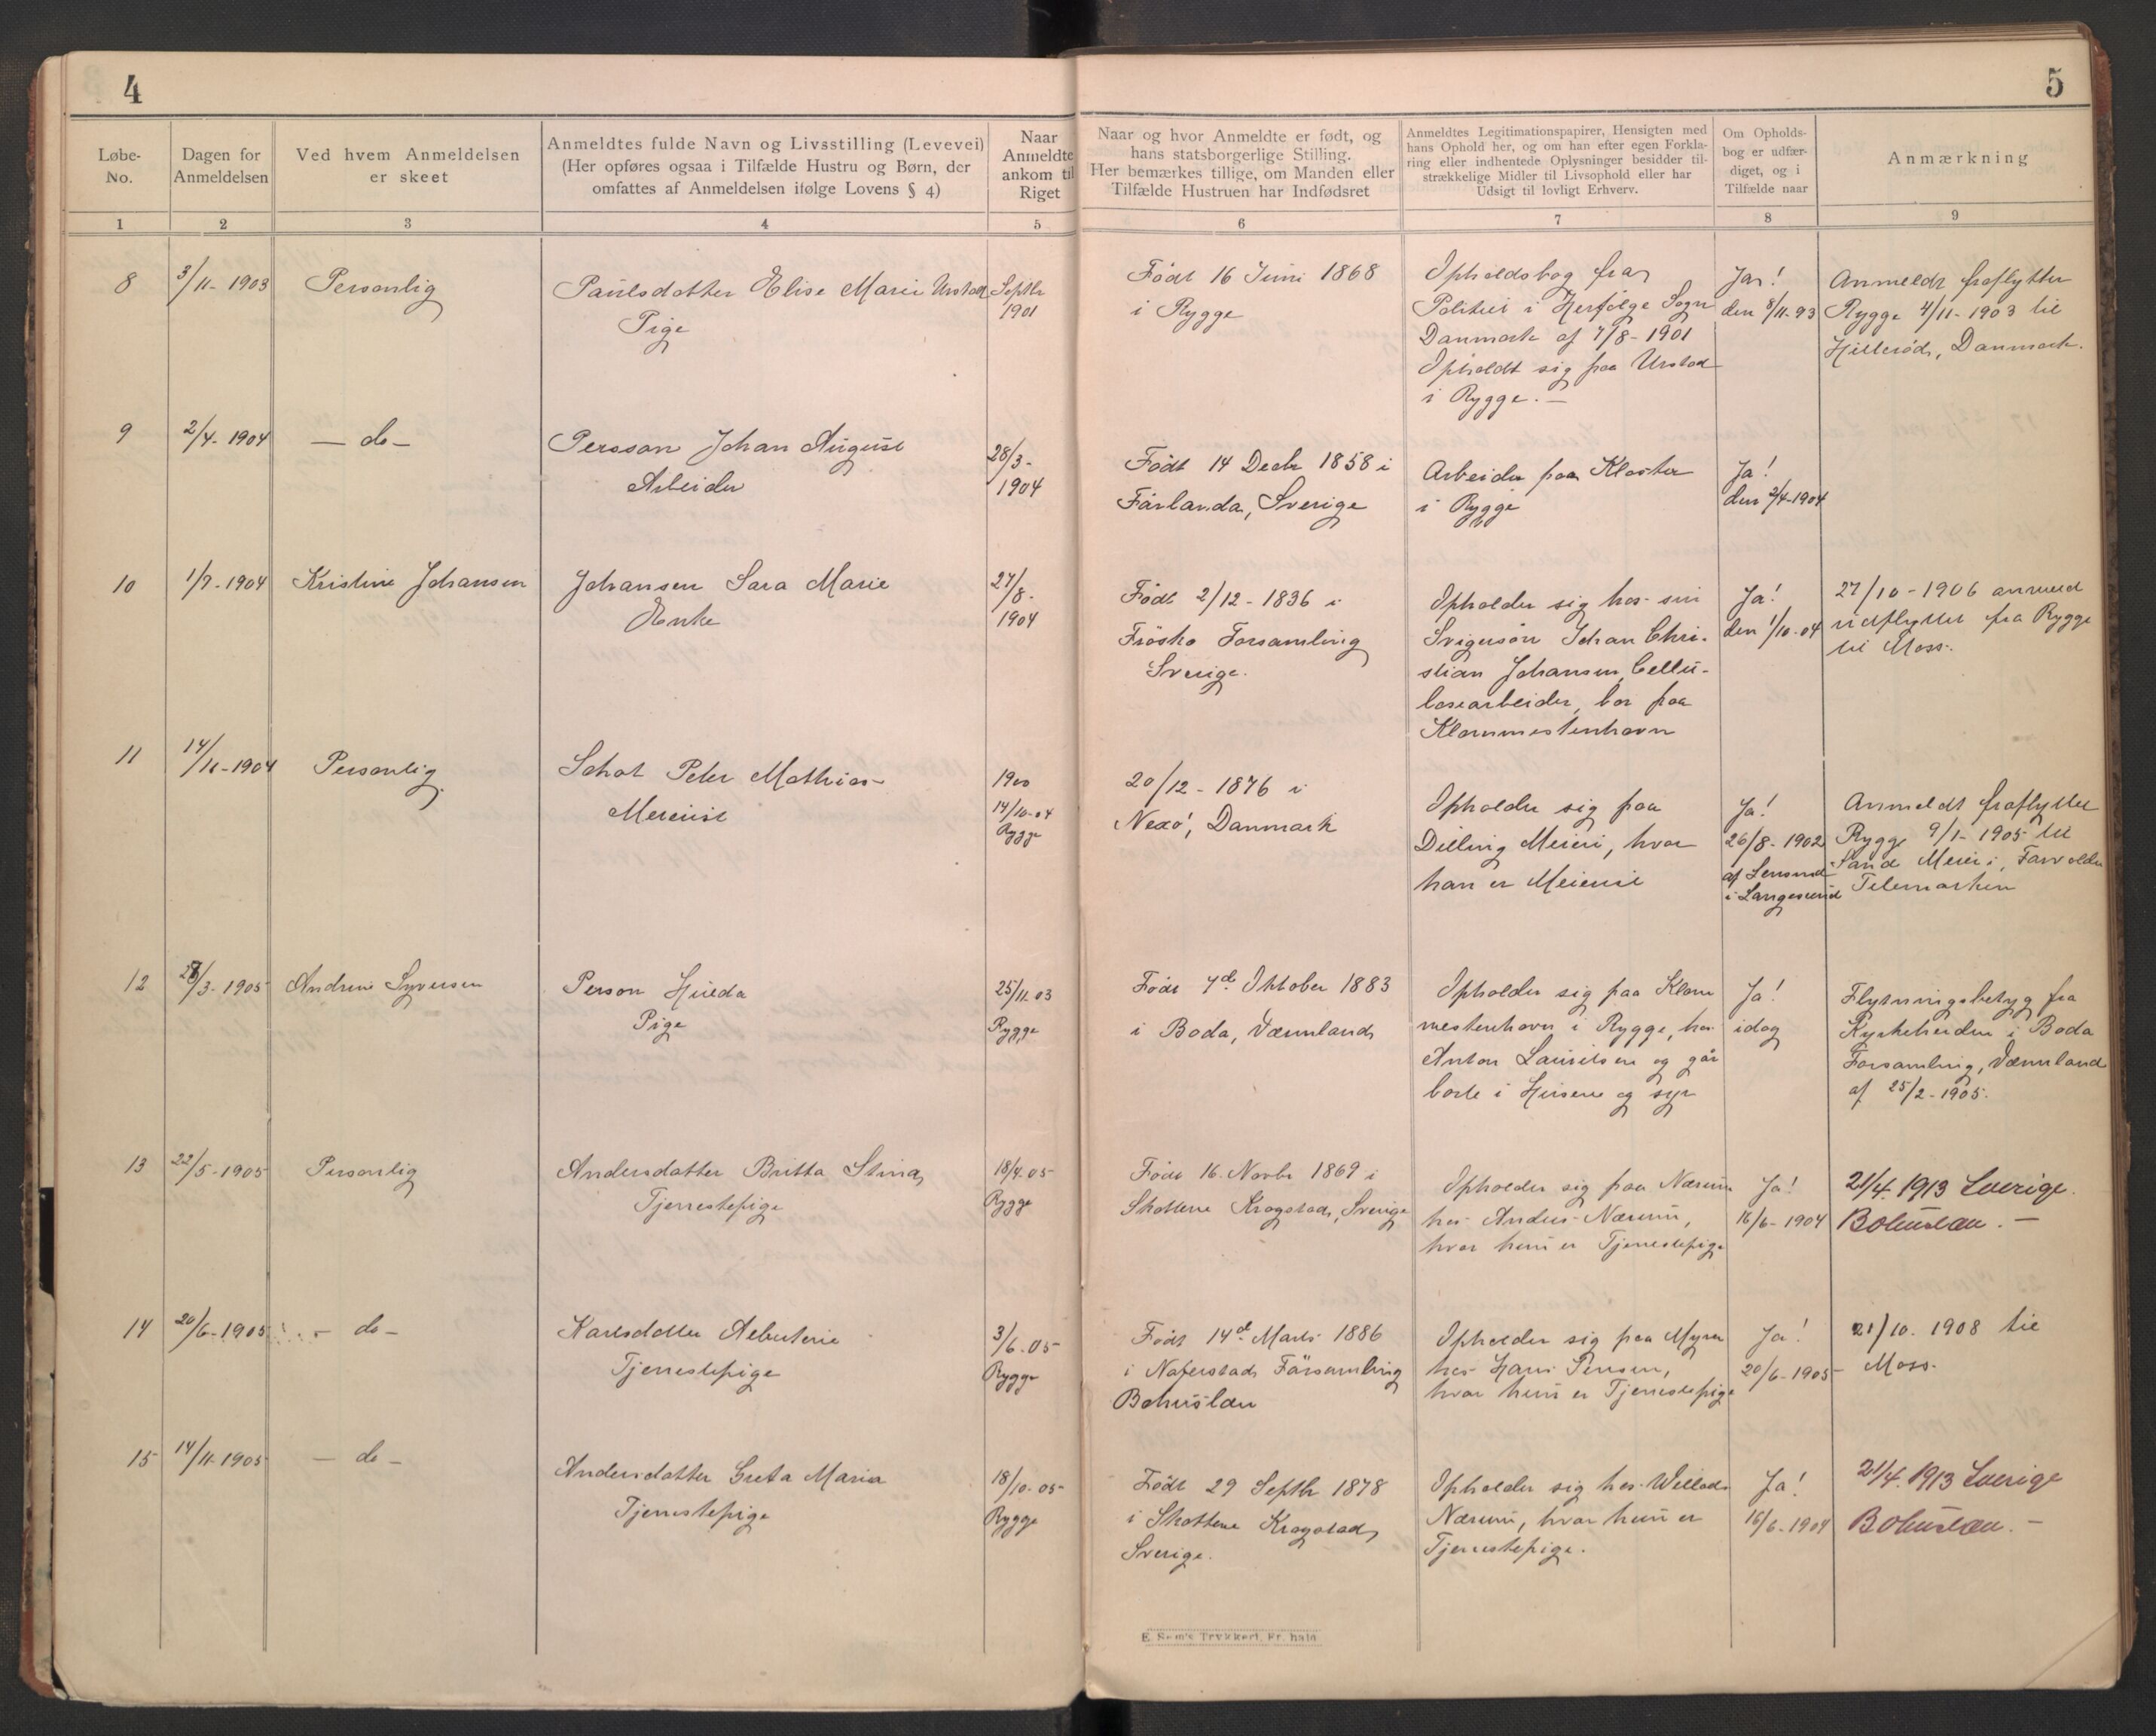 4
5
Løbe-
No.
Dagen for
Anmeldelsen
Ved hvem Anmeldelsen
er skeet
Anmeldtes fulde Navn og Livsstilling (Levevei)
(Her opføres ogsaa i Tilfælde Hustru og Børn, der
omfattes af Anmeldelsen ifølge Lovens § 4)
Naar
Anmeldte
ankom til
Riget
Naar og hvor Anmeldte er født, og
hans statsborgerlige Stilling.
Her bemærkes tillige, om Manden eller
Tilfælde Hustruen har Indfødsret
Anmeldtes Legitimationspapirer, Hensigten med
hans Ophold her, og om han efter egen Forkla-
ring eller indhentede Oplysninger besidder til-
strækkelige Midler til Livsophold eller har
Udsigt til lovligt Erhverv.
Om Opholds-
bog er udfær-
diget, og i
Tilfælde naar
Anmærkning
1
2
3
4
5
6
7
8
9
8
3/11-1903
Personlig
Paulsdatter Elise Marie Urstad
Pige
Septbr
1901
Født 16 Juni 1868
i Rygge
Opholdsbog fra
Politiet i Herfølge Sogn
Danmark af 7/8-1901
Opholdt sig paa Urstad
i Rygge. —
Ja!
den 8/11-93
Anmeldt fraflyttet
Rygge 4/11-1903 til
Hillerød, Danmark.
9
2/4-1904
— do —
Persson Johan August
Arbeider
28/3-
1904
Født 14 Decbr 1858 i
Färlanda, Sverige
Arbeider paa Kloster
i Rygge
Ja!
den 2/4-1904
10
1/9-1904
Kristine Johansen
Johansen Sara Marie
Enke
27/8-
1904
Født 2/12-1836 i
Forsamling
Sverige.
Opholder sig hos sin
Svigersøn Johan Chri-
stian Johansen, Cellu-
losearbeider, bor paa
Klommestenhavn
Ja!
den 1/10-04
27/10-1906 anmeld
udflyttet fra Rygge
til Moss.
11
14/11-1904
Personlig
Schat Peter Mathias
Meierist
1900
14/10-04
Rygge
20/12-1876 i
Nexø, Danmark
Opholder sig paa
Dilling Meieri, hvor
han er Meierist
Ja!
26/8-1902
af Lensmd
i Langesund
Anmeldt fraflyttet
Rygge 9/1-1905 til
Sand Meieri,
Telemarken
12
27/3-1905
Andrine Syversen
Person Hilda
Pige
25/11.03
Rygge
Født 7de Oktober 1883
i Boda, Värmland
Opholder sig paa Klom
mestenhavn i Rygge, hos
Anton Lauritsen og går
borte i Husene og syr
Ja!
idag
Flytningsbetyg fra
Kyrkeheden i Boda
Forsamling, Värmland
af 25/2-1905.
13
22/5-1905
Personlig
Andersdatter Britta Stina
Tjenestepige
18/4.05
Rygge
Født 16. Novbr 1869 i
Skottene Krogstad, Sverige
Opholder sig paa Nærum
hos Anders Nærum,
hvor hun er Tjenestepige
Ja!
16/6-1904
21/4.1913 Sverige.
Bohuslän. —
14
20/6-1905
— do —
Karlsdatter Albertine
Tjenestepige
3/6.05
Rygge
Født 14de Marts 1886
i Naverstad Församling
Bohuslän
Opholder sig paa Myrer
hos Hans Jensen,
hvor hun er Tjenestepige
Ja!
20/6-1905
21/10.1908 til
Moss.
15
14/11-1905
— do —
Andersdatter Greta Maria
Tjenestepige
18/10-05
Rygge
Født 29 Septbr 1878
i Skottene Krogstad,
Sverige.
Opholder sig hos Willads
Nærum, hvor hun er
Tjenestepige.
Ja!
16/6-1904
21/4.1913 Sverige
Bohuslän. —
E. Sem's Trykkeri, Fr.hald